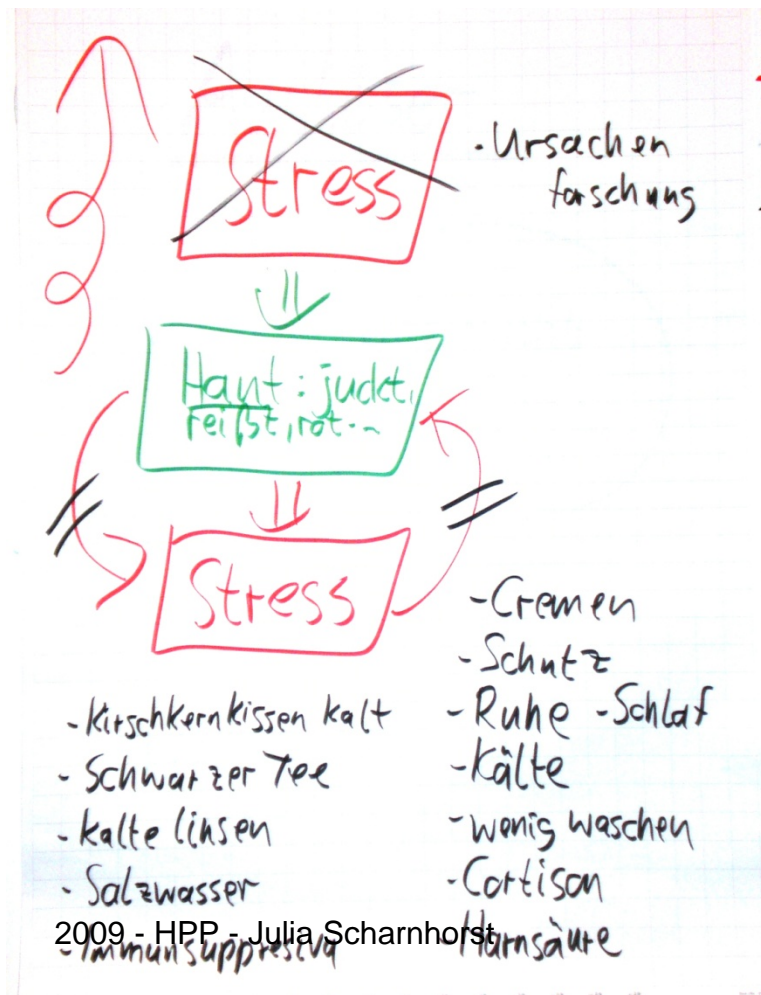 Stress
- Ursachen
forschung
Haut: juckt,
reißt, rot...
Stress
- Kirschkernkissen kalt
- Schwarzer Tee
- kalte linsen
- Salzwasser
- Immunsuppressiva
- Cremen
- Schutz
- Ruhe - Schlaf
- Kälte
- wenig waschen
- Cortison
- Harnsäure
2009 - HPP - Julia Scharnhorst